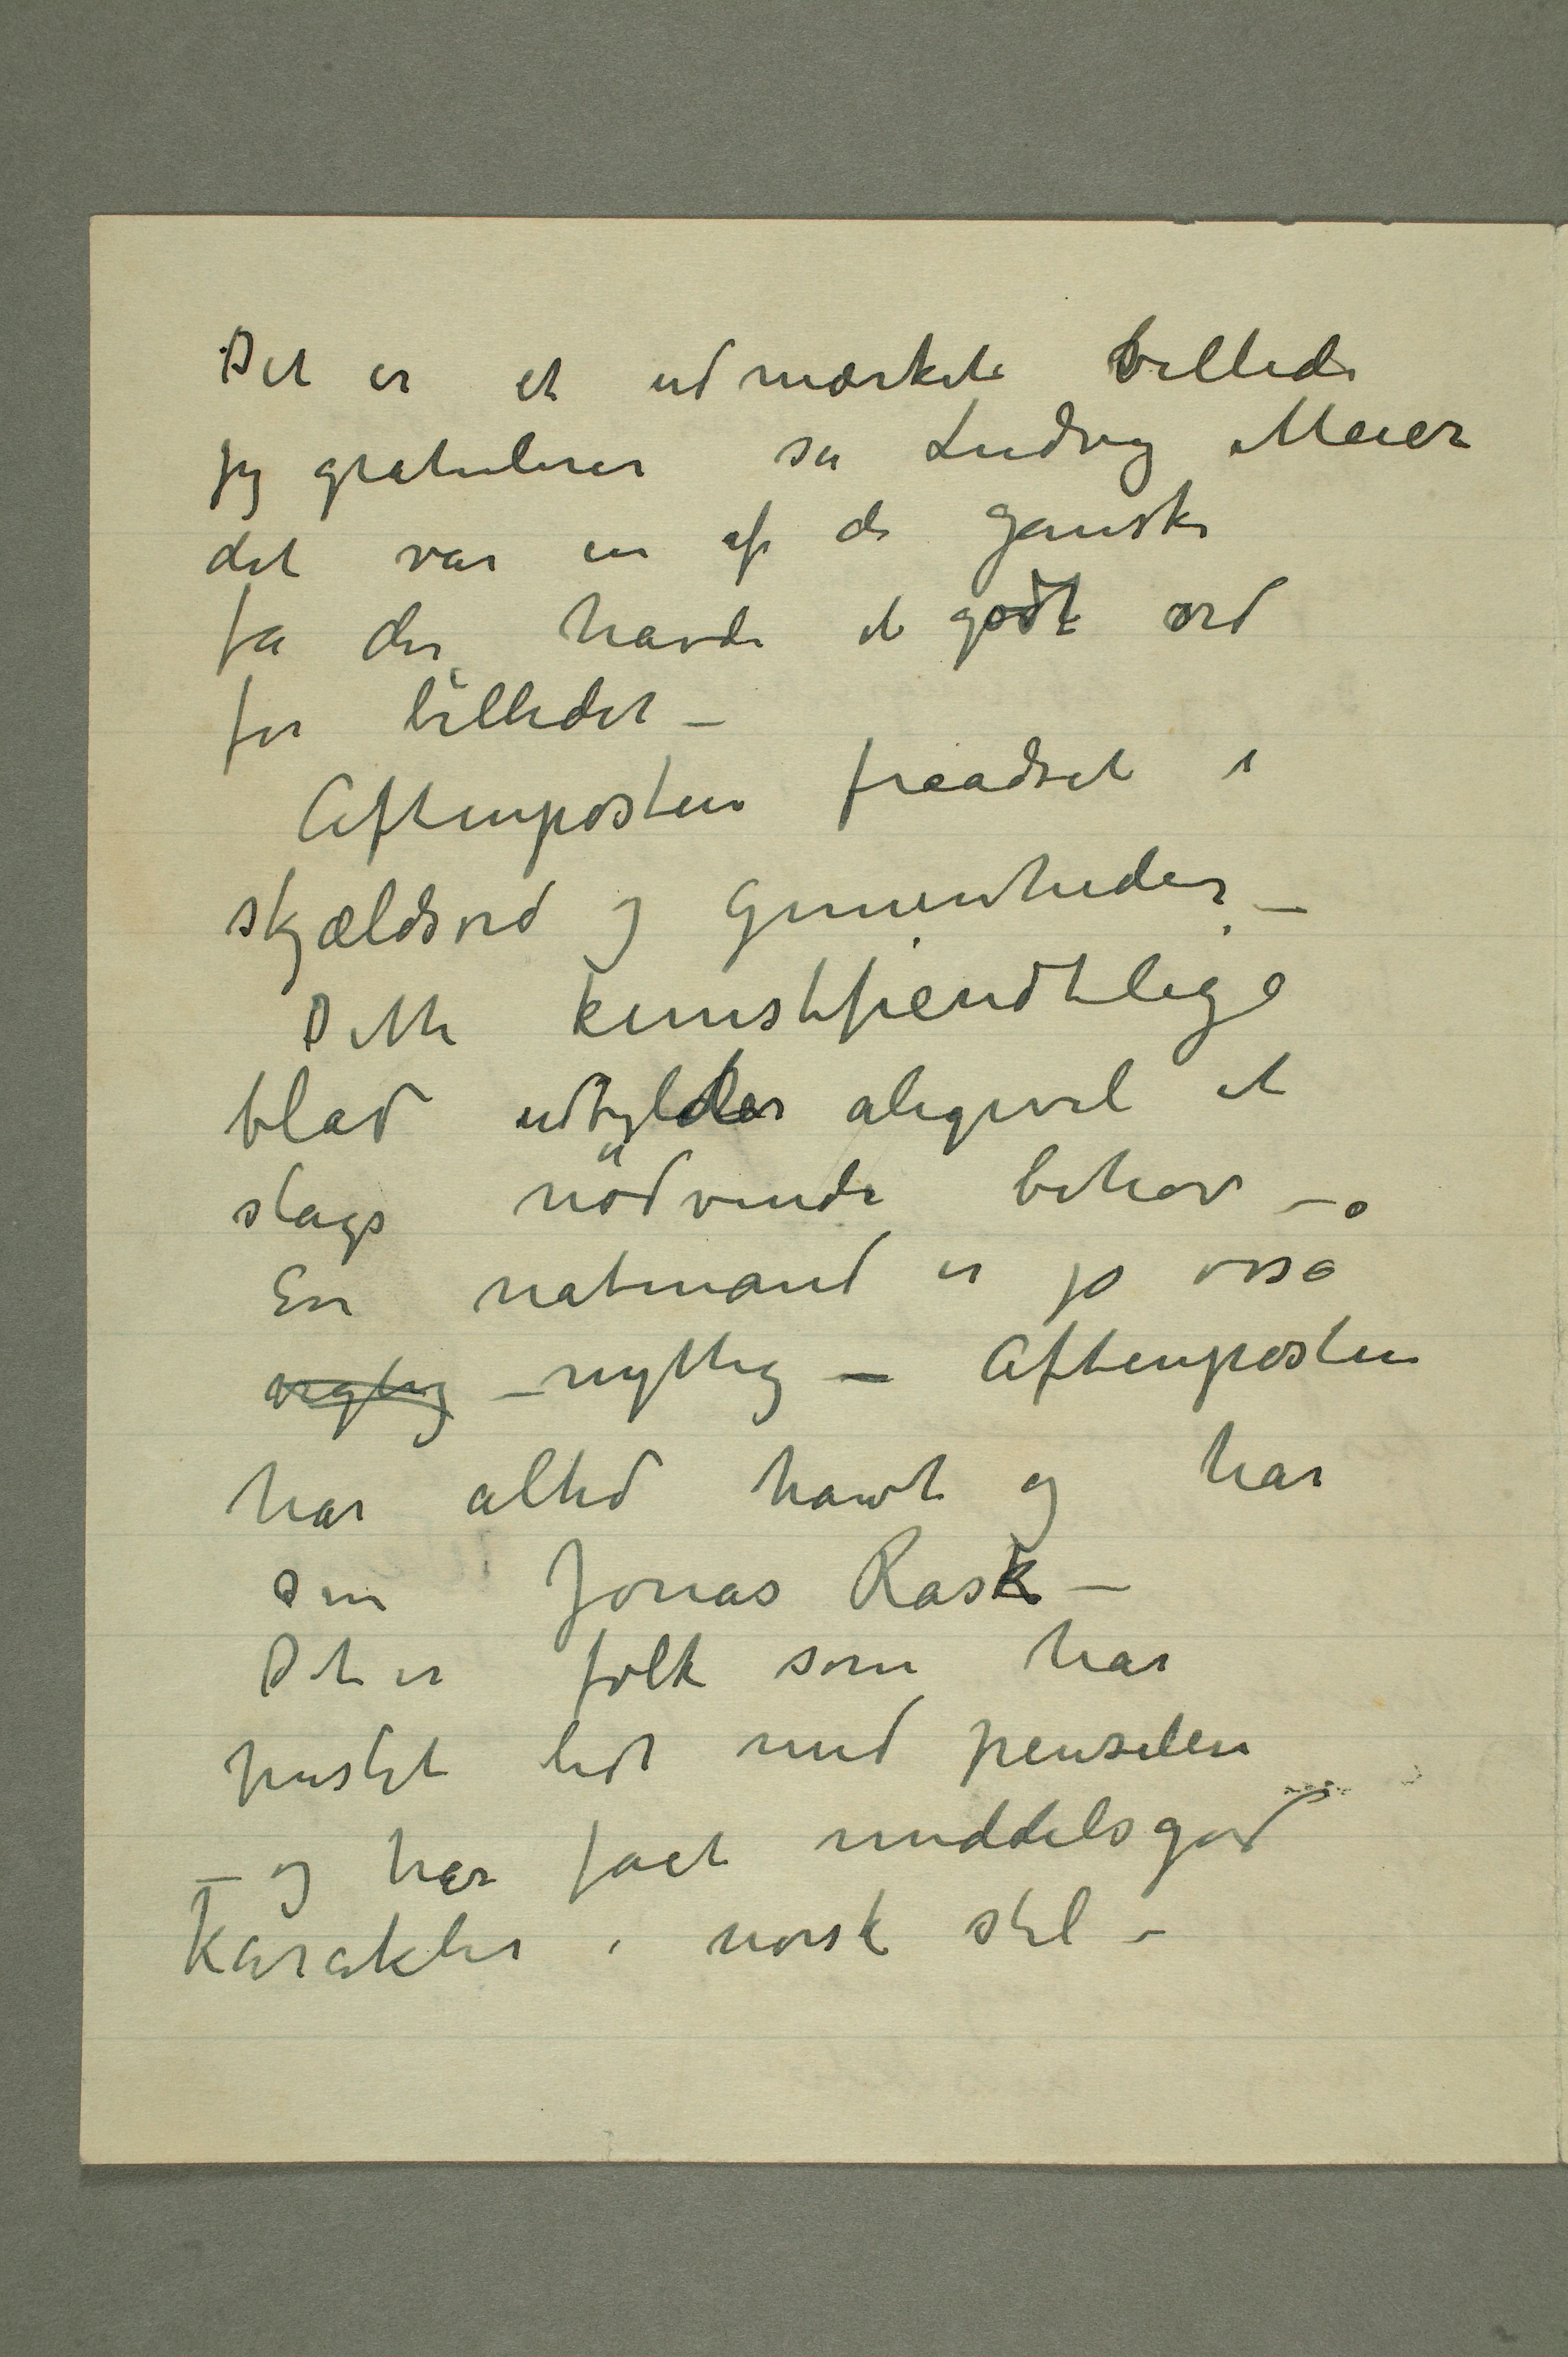 Det er et udmærkete billede
jeg gratulerer sa Ludvig Meier
det var en af de ganske
fa der havde et godt ord
for billedet –
Aftenposten fraadset i
skjældsord og Gemenheder –
Dette kunstfiendtlige
blad udfylder aligevel et
slags nödvende behov –
En natmand er jo osså
vigtig – nyttig – Aftenposten
har altid havt og har
sin Jonas Rask –
Det er folk som har
pusket lidt med penselen
– og har faaet middelsgod
Karakter i norsk stil –